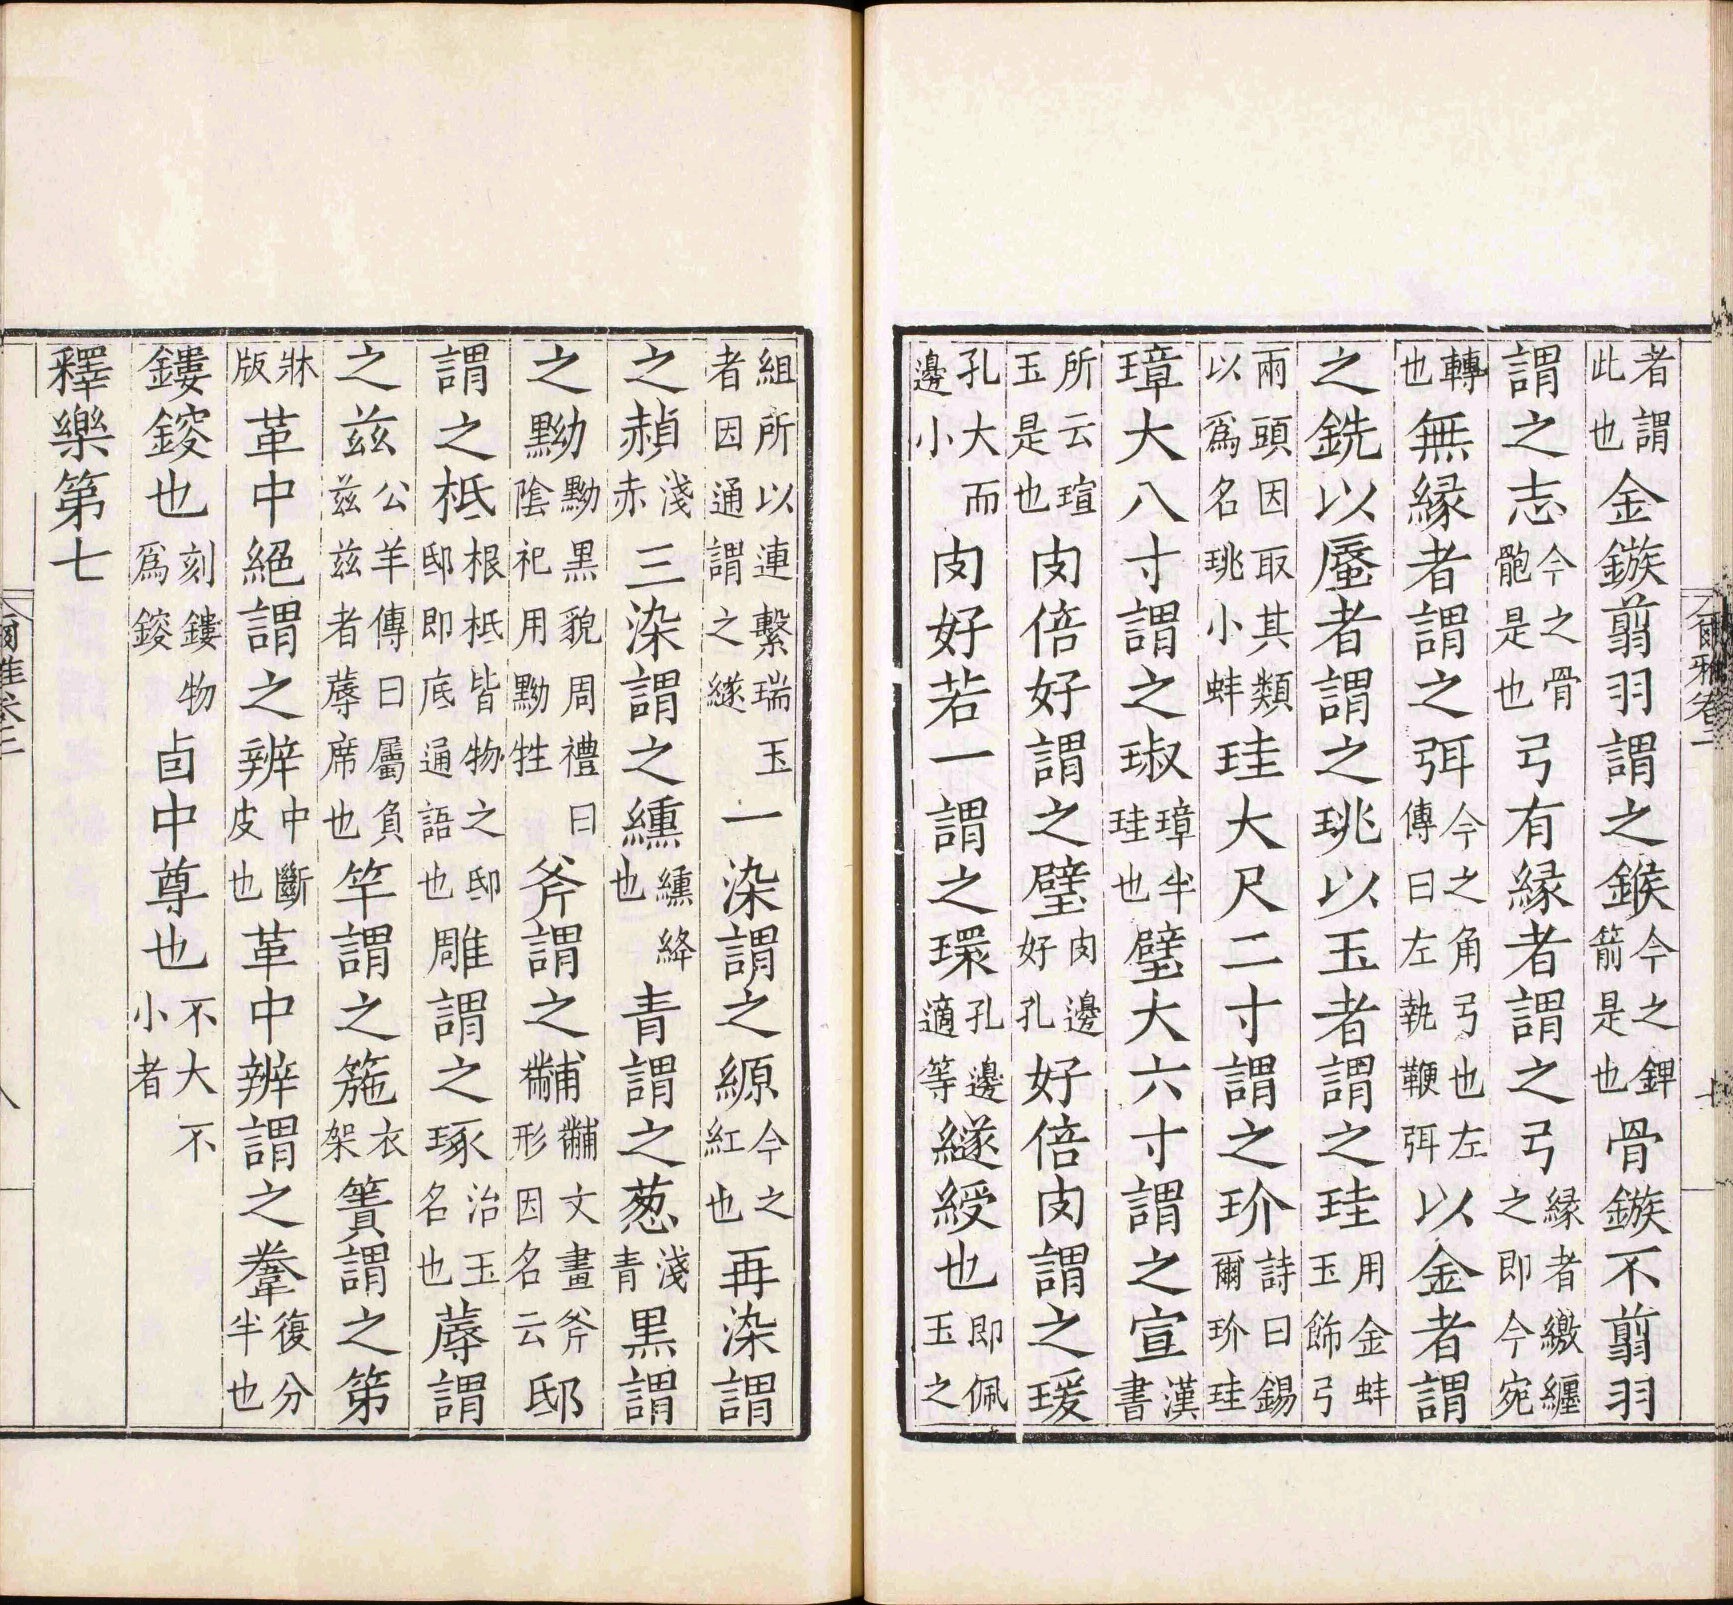 爾雅卷
者謂此也金鏃翦羽謂之鍭今之錍箭是也骨鏃不翦羽
謂之志今之骨骲是也弓有緣者謂之弓緣者繳纏之即今宛
轉也無緣者謂之弭今之角弓也左傳曰左執鞭弭以金者謂
之銑以蜃者謂之珧以玉者謂之珪用金蚌玉飾弓
兩頭因取其類以爲名珧小蚌珪大尺二寸謂之玠詩曰錫爾玠珪
璋大八寸謂之琡璋半珪也璧大六寸謂之宣漢書
所云瑄玉是也肉倍好謂之璧肉邊好孔好倍肉謂之瑗
孔大而邊小肉好若一謂之環孔邊適等繸綬也即佩玉之
組所以連繫瑞玉者因通謂之繸一染謂之縓今之紅也再染謂
之赬淺赤三染謂之纁纁絳也青謂之葱淺青黑謂
之黝黝黑貌周禮曰陰祀用黝牲斧謂之黼黼文畫斧形因名云邸
謂之柢根柢皆物之邸邸即底通語也雕謂之琢治玉名也蓐謂
之兹公羊傳曰屬負兹兹者蓐席也竿謂之箷衣架簀謂之第
牀版革中絕謂之辨中斷皮也革中辨謂之韏復分半也
鏤鎪也刻鏤物爲鎪卣中尊也不大不小者
釋樂第七
爾雅卷